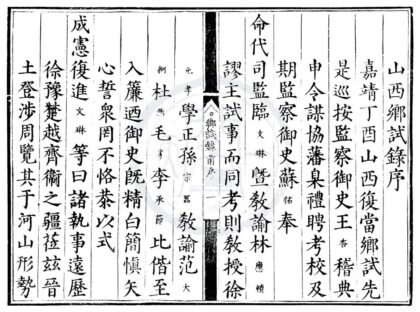 山西鄉試錄序
嘉靖丁酉山西復當鄉試先
是巡按監察御史王杏稽典
申令諜協藩臬禮聘考校及
期監察御史蘇祐奉
命代司監臨文琳暨教諭林應
謬主試事而同考則教授徐
鄉試錄前序
一
元孝學正孫宗器教諭范大
杜毛李承節比偕至
入簾迺御史既精白簡慎矢
心誓衆罔不恪恭以式
成憲復進文琳等曰諸執事遠歷
徐豫楚越齊衞之疆茲晉
土登涉周覽其于河山形勢